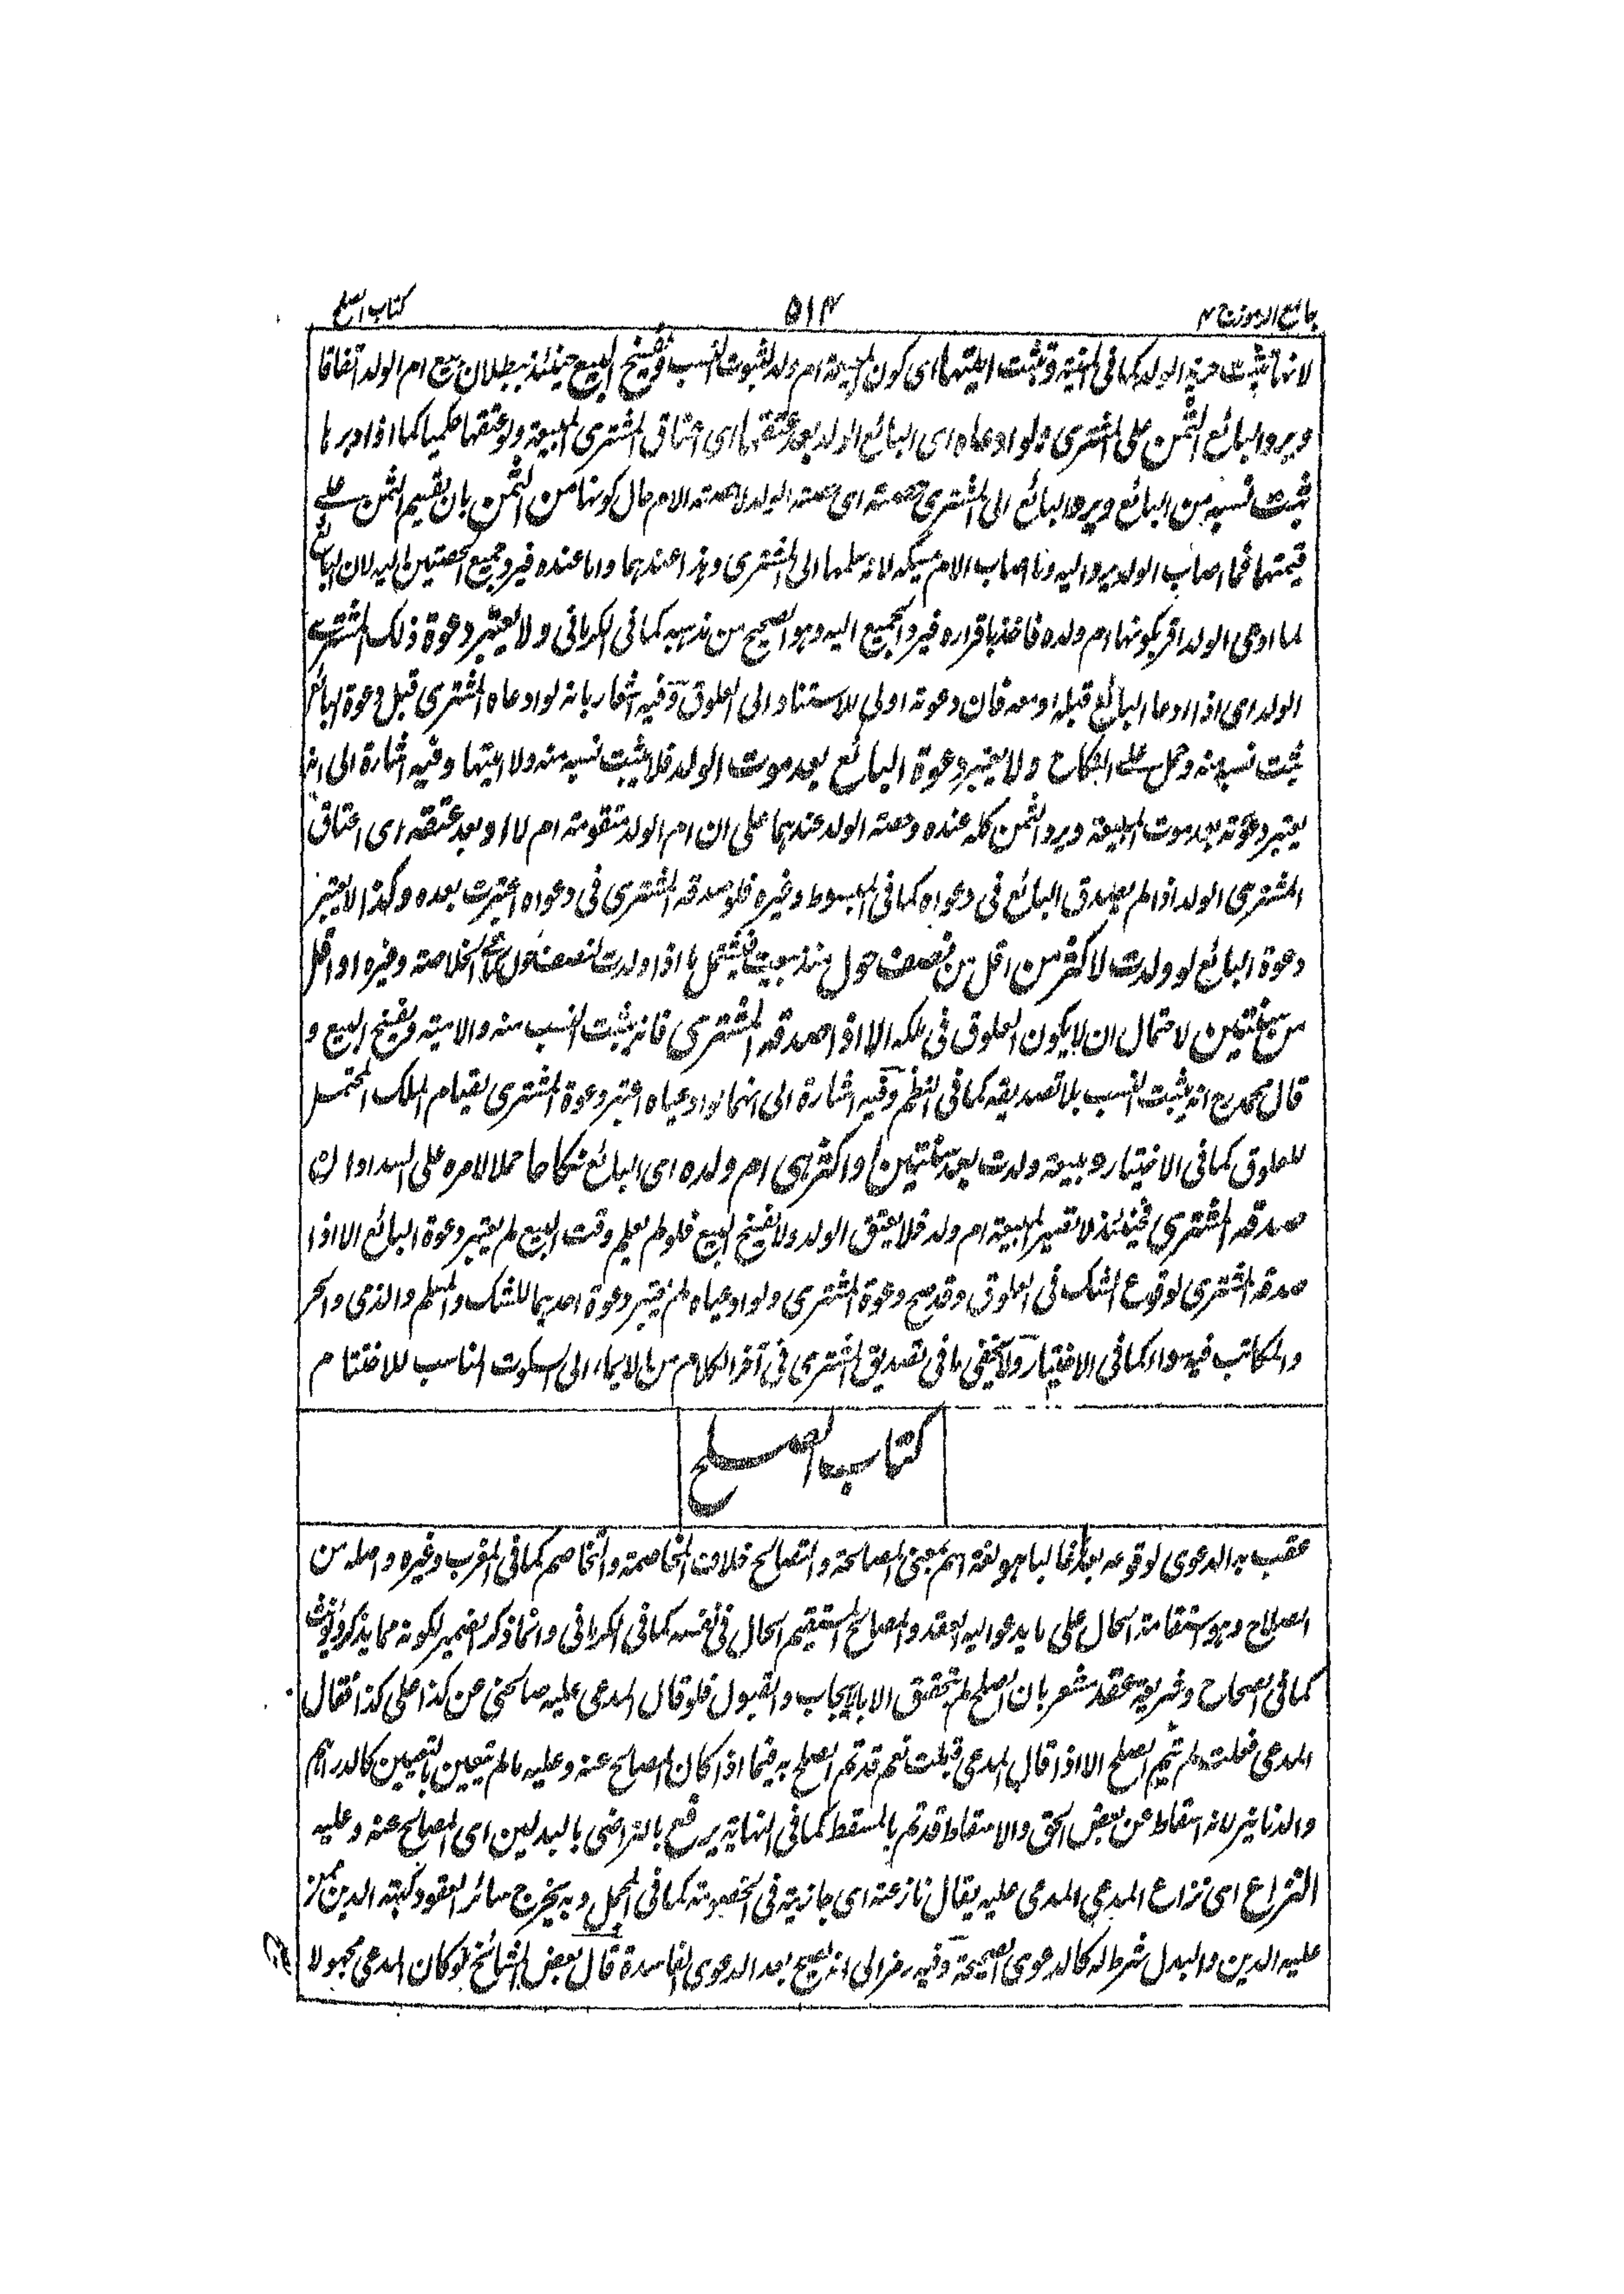 جامع الرموز ج ٢ ٥١٤ كتاب الصلح
لانها تثبت حرية الولد كما في المنية وتثبت اميتها اى كون المبيعة ام ولد لثبوت النسب وفيفسخ البيع حينئذ لبطلان بيع ام الولد اتفاقا
ويرد البائع الثمن على المشترى ولو ادعاه اى البائع الولد بعد عتقها اى اعتاق المشترى المبيعة ولو عتقها حكميا كما اذا دبرها
ثبت نسبه من البائع ويرد البائع الى المشترى حصته اى حصة الولد لا حصة الام حال كونها من الثمن بان تقسيم الثمن على
قيمتها فما اصاب الولد يرد اليه وما اصاب الام يمسكه لانه سلمها الى المشترى وهذا عندهما واما عنده فيرد جميع الحصتين اليه لان البائع
لما ادعى الولد اقر بكونها ام ولده فاخذ باقراره فيرد الجميع اليه وهو الصحيح من مذهبه كما في الكرماني ولا يعتبر دعوة ذلك المشترى
الولد اى اذا ادعا البائع قبله او معه فان دعوته اولى للاستناد الى العلوق وفيه اشعار بانه لو ادعاه المشترى قبل دعوة البائع
يثبت نسبه منه وحمل على النكاح ولا يعتبر دعوة البائع بعد موت الولد فلا يثبت نسبه منه ولا اميتها وفيه اشارة الى انه
يعتبر دعوته بعد موت المبيعة ويرد الثمن كله عنده وحصة الولد عندهما على ان ام الولد متقومة ام لا او بعد عتقه اى اعتاق
المشترى الولد اذا لم يصدق البائع في دعواه كما في المبسوط وغيره فلو صدقه المشترى في دعواه اعتبرت بعده وكذا لا يعتبر
دعوة البائع لو ولدت لاكثر من اقل من نصف حول منذ بيعت فيشتمل ما اذا ولدت لنصف حول كما في الخلاصة وغيره او اقل
من سنتين لاحتمال ان لا يكون العلوق في ملكه الا اذا صدقه المشترى فانه يثبت النسب منه والامية ويفسخ البيع و
قال محمد رح انه يثبت النسب بلا تصديقه كما في النظم وفيه اشارة الى انهما لو ادعياه اعتبر دعوة المشترى لقيام الملك المحتمل
للعلوق كما في الاختيار ومبيعة ولدت بعد سنتين او اكثر هى ام ولده اى البائع نكاحا حملا لامره على السداد ان
صدقه المشترى فحينئذ لا تصير المبيعة ام ولد فلا يعتق الولد ولا يفسخ البيع فلو لم يعلم وقت البيع لم يعتبر دعوة البائع الا اذا
صدقه المشترى لوقوع الشك في العلوق وقد صح دعوة المشترى ولو ادعياه لم يعتبر دعوة احدهما للشك والمسلم والذمى والحر
والمكاتب فيه سواء كما في الاختيار ولا يخفى ما في تصديق المشترى في آخر الكلام من الايماء الى السكوت المناسب للاختتام
كتاب الصلح
عقب به الدعوى لوقوعه بعدها غالبا هو لغة اسم بمعنى المصالحة والتصالح خلاف المخاصمة والتخاصم كما في المغرب وغيره واصله من
الصلاح وهو استقامة الحال على ما يدعو اليه العقد والمصالح المستقيم الحال في نفسه كما في الكرماني وانما ذكر الضمير لكونه مما يذكر ويؤنث
كما في الصحاح وشريعة عقد مشعر بان الصلح لم يتحقق الا بالايجاب والقبول فلو قال المدعى عليه صالحنى من كذا على كذا فقال
المدعى فعلت لم يتم الصلح الا اذا قال المدعى قبلت نعم قد تم الصلح به فيما اذا كان المصالح عنه وعليه مما لم يتعين بالتعيين كالدراهم
والدنانير لانه اسقاط عن بعض الحق والاسقاط قد تم بالمسقط كما في النهاية يرفع بالتراضى بالبدلين اى المصالح عنه وعليه
النزاع اى نزاع المدعى المدعى عليه يقال نازعته اى جاذبته في الخصومة كما في المجمل وبه يخرج سائر العقود كهبة الدين ممن
عليه الدين والبدل شرط له كالدعوى الصحيحة وفيه رمز الى انه يصح بعد الدعوى الفاسدة قال بعض المشائخ لو كان المدعى مجهولا